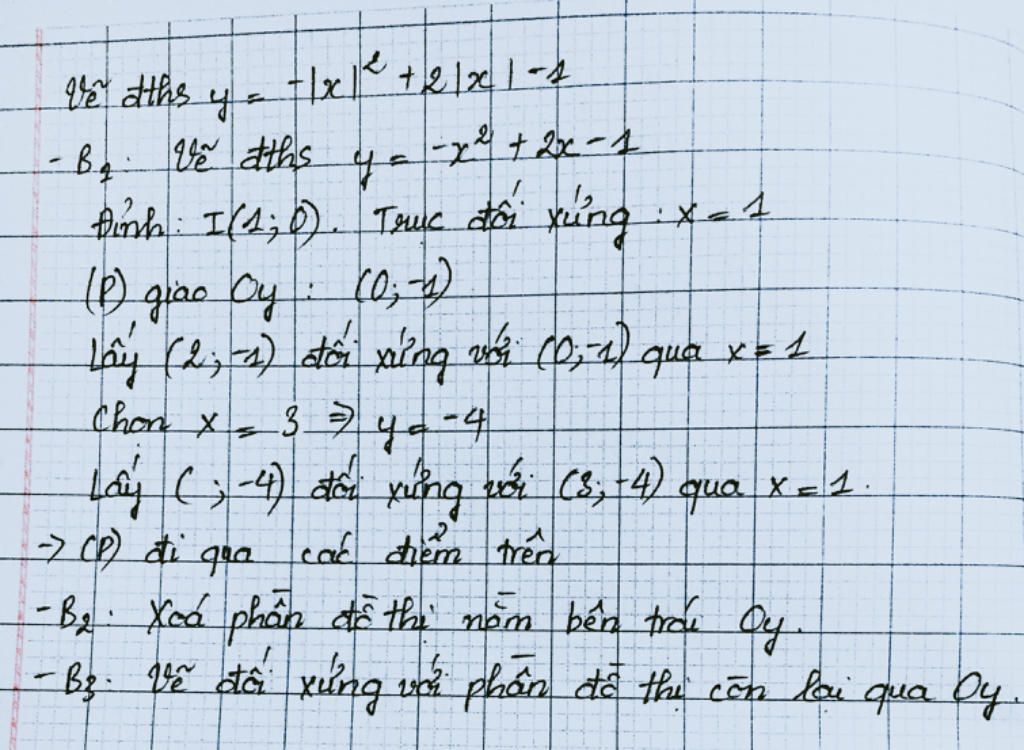 Vẽ đths y = -|x|² + 2|x| - 1
- B₁: Vẽ đths y = -x² + 2x - 1
Đỉnh: I(1; 0). Trục đối xứng: x = 1
(P) giao Oy: (0; -1)
Lấy (2; -1) đối xứng với (0; -1) qua x = 1
Chọn x = 3 ⇒ y = -4
Lấy ( ; -4) đối xứng với (3; -4) qua x = 1.
→ (P) đi qua các điểm trên
- B₂: Xoá phần đồ thị nằm bên trái Oy.
- B₃: Vẽ đối xứng với phần đồ thị còn lại qua Oy.